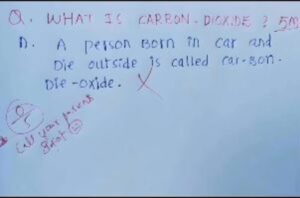 Q. WHAT IS CARBON-DIOXIDE ?
A. A person Born in car and
Die outside is called car-Bon.
Die-oxide.
Call your parent